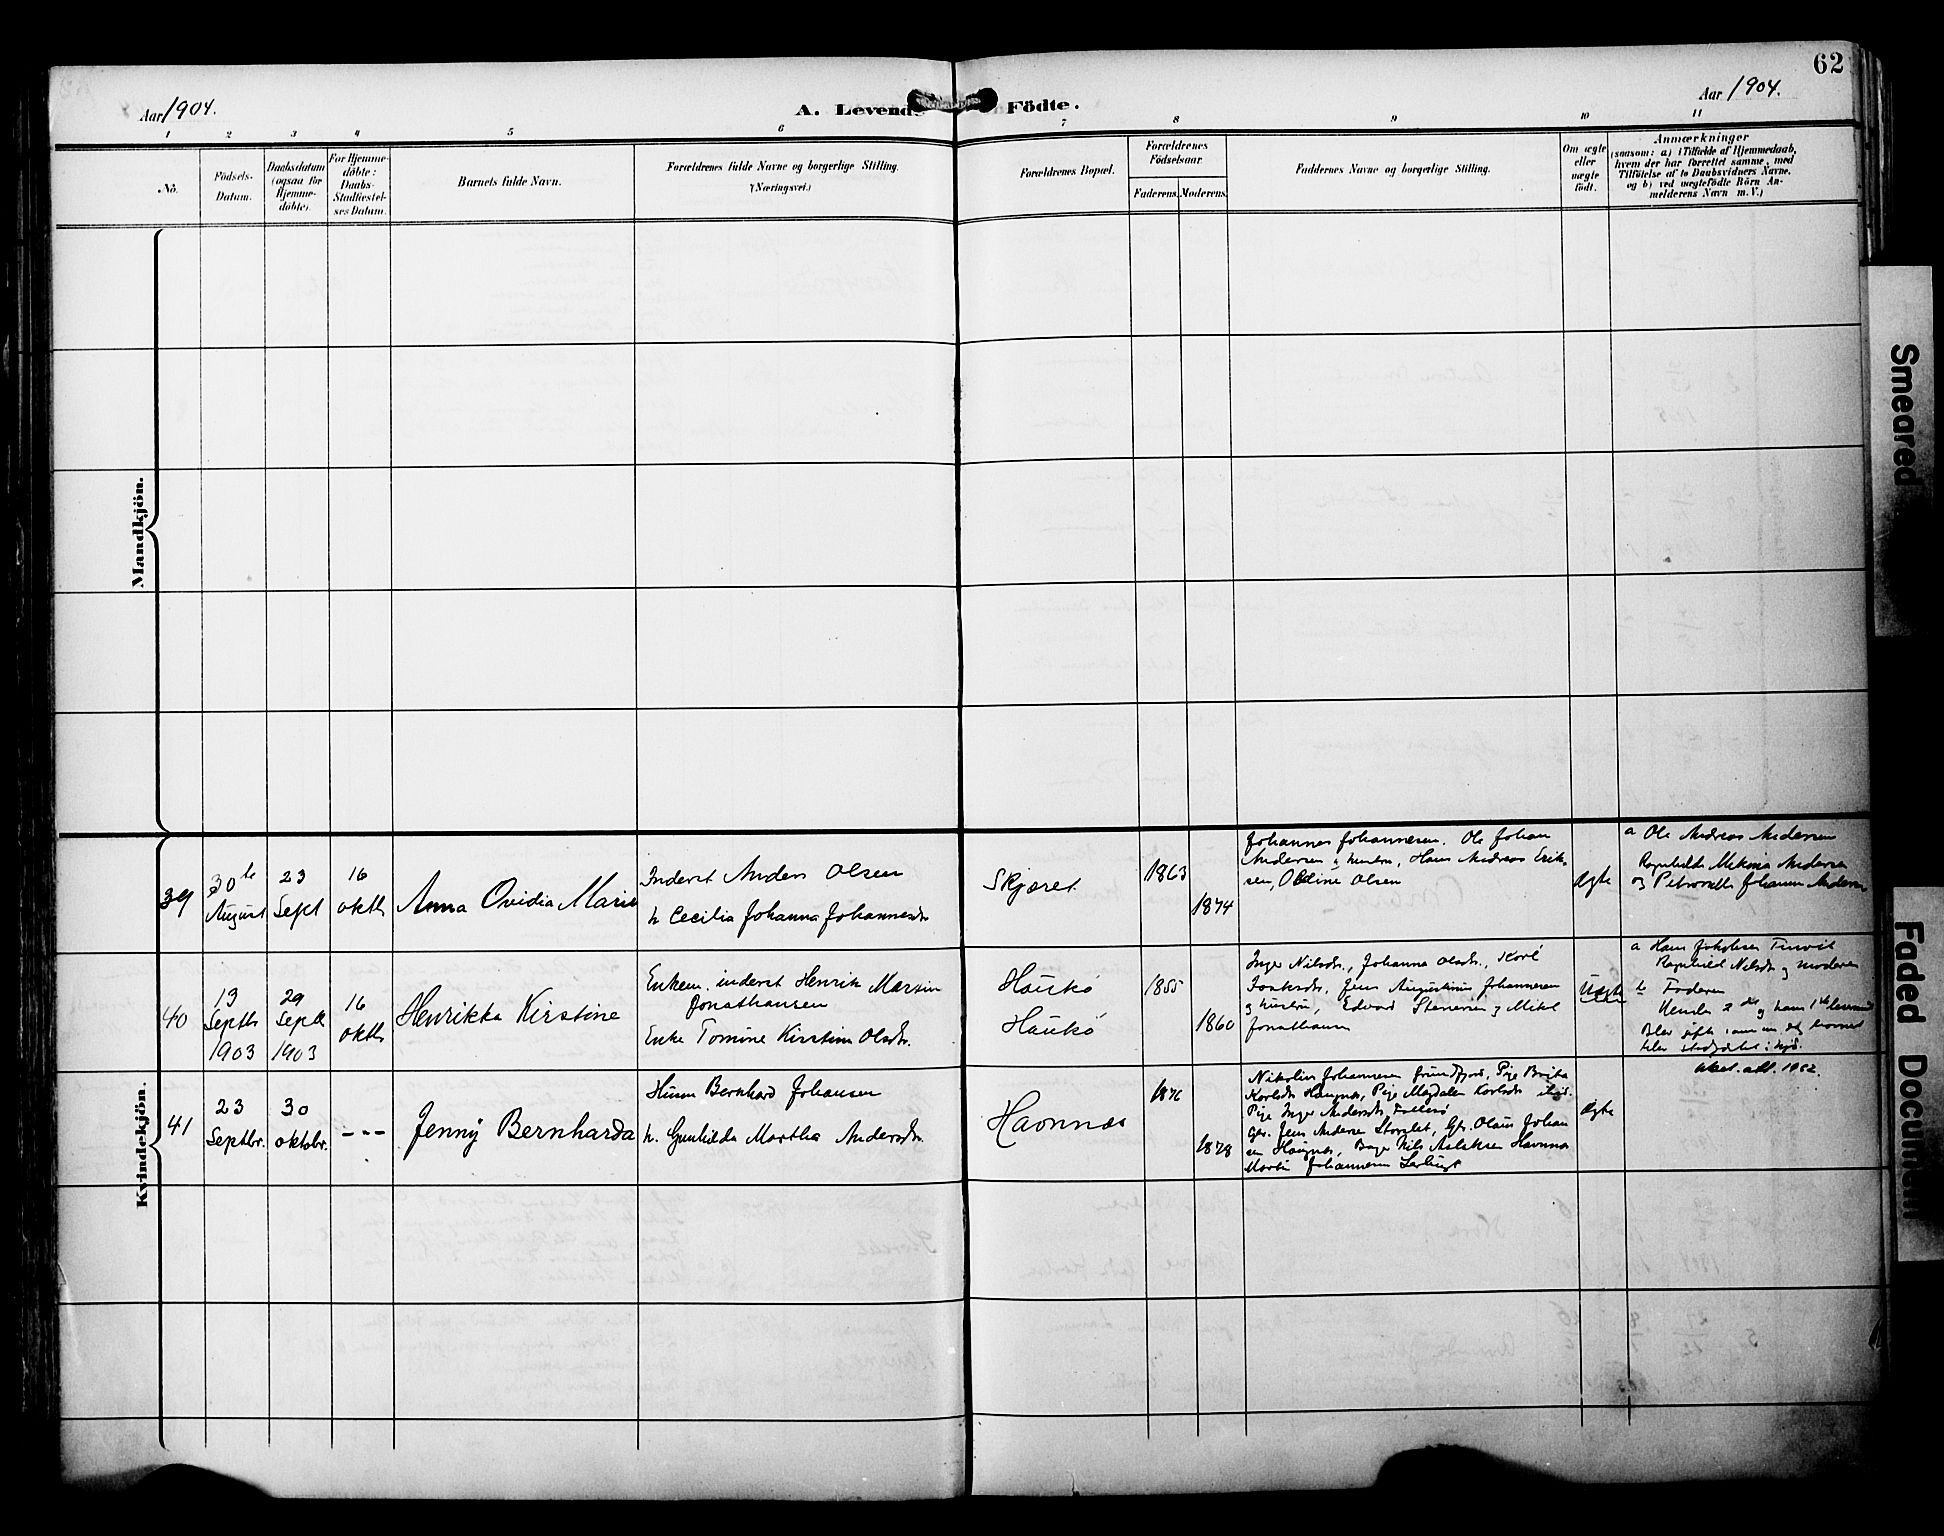 62
Aar 1904.
A. Levende Födte.
Aar 1904.
1 2 3 4 5 6 7 8 9 10 11
No.
Födsels-Datum.
Daabsdatum (ogsaa for Hjemme-döbte).
For Hjemme-döbte: Daabs-Stadfæstel-ses Datum.
Barnets fulde Navn.
Forældrenes fulde Navne og borgerlige Stilling.
(Næringsvei.)
Forældrenes Bopæl.
Forældrenes Födselsaar.
Faderens.
Moderens.
Faddernes Navne og borgerlige Stilling.
Om ægte eller uægte födt.
Anmærkninger
(saasom: a) i Tilfælde af Hjemmedaab,
hvem der har forrettet samme, med
Tilföielse af to Daabsvidners Navne,
og b) ved uægtefödte Börn An-
melderens Navn m. V.)
Mandkjön.
Kvindekjön.
39
30te
August
23
Sept
16
oktb
Anna Ovidia Marie
Inderst Anders Olsen
h Cecilia Johanna Johannesdr
Skjæret
1863
1874
Johannes Johannesen. Ole Johan
Andersen og hustru, Hans Andreas Erik-
sen, Oline Olsen
Ægte
a Ole Andreas Andersen
Ragnhild Andersen
og Petronella Johanna Andersen
40
19
Septb
1903
29
Septb
1903
16
oktb
Henrikka Kirstine
Enkem. inderst Henrik Martin
Jonathansen
Enke Tomine Kirstine Olsdr.
Haukö
Haukö
1855
1860
Inger Nilsdr., Johanna Olsdr., Karl
Jens Augustinus Johannesen
og hustru, Edvard Stenersen og Mikal
Jonathansen
Uægte
a Hans Jakobsen
Ragnhild Nilsdr og moderen
b Faderen
Hendes 2det og hans 1ste
41
23
Septbr.
30
oktobr.
---
Jenny Bernharda
Husm Bernhard Johansen
h. Gunhilda Martha Andersdr.
Havnnæs
1876
1878
Nikolai Johannesen Grundfjord, Pige Berita
Karlsdr Haugnæs, Pige Magdalen Karlsdr
Pige Inger Andersdr
Gbr. Jens Andersen Storslet, Gbr. Olaus Johan
sen Haugnæs, Nils Aslaksen Havnnæs
Martin Johannesen
Ægte
Smeared
Faded Document